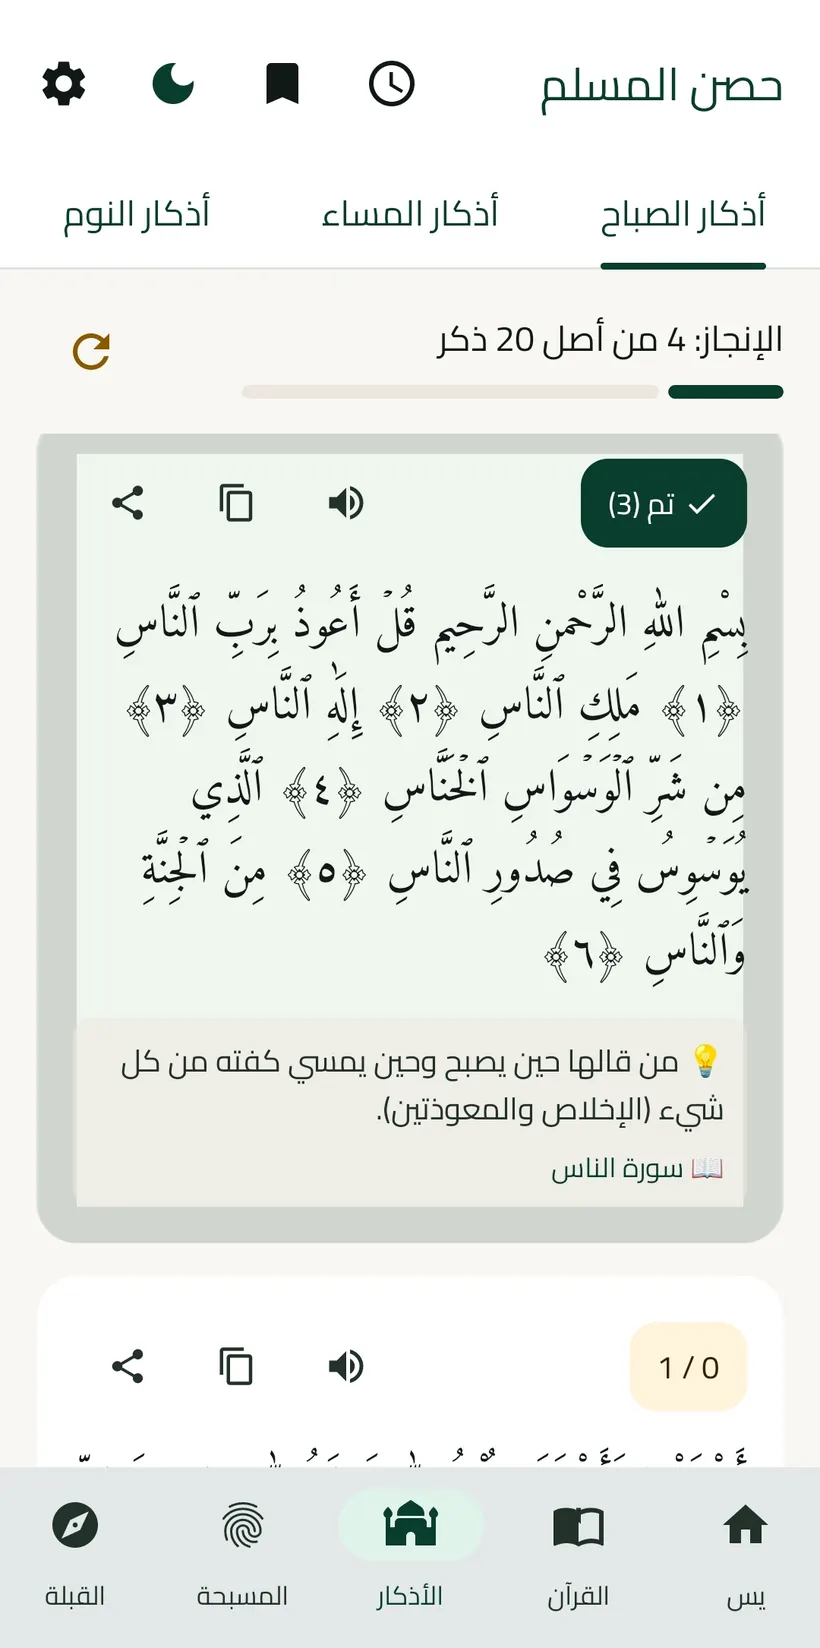 حصن المسلم
أذكار الصباح
أذكار المساء
أذكار النوم
الإنجاز: 4 من أصل 20 ذكر
تم (3)
بِسْمِ اللهِ الرَّحْمنِ الرَّحِيم قُلۡ أَعُوذُ بِرَبِّ ٱلنَّاسِ
﴿١﴾ مَلِكِ ٱلنَّاسِ ﴿٢﴾ إِلَٰهِ ٱلنَّاسِ ﴿٣﴾
مِن شَرِّ ٱلۡوَسۡوَاسِ ٱلۡخَنَّاسِ ﴿٤﴾ ٱلَّذِي
يُوَسۡوِسُ فِي صُدُورِ ٱلنَّاسِ ﴿٥﴾ مِنَ ٱلۡجِنَّةِ
وَٱلنَّاسِ ﴿٦﴾
💡 من قالها حين يصبح وحين يمسي كفته من كل
شيء (الإخلاص والمعوذتين).
📖 سورة الناس
1 / 0
يس
القرآن
الأذكار
المسبحة
القبلة